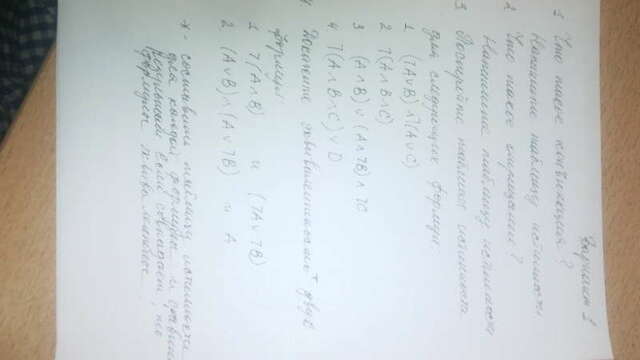 Вариант 1
1 Что такое конъюнкция?
Напишите таблицу истинности
2 Что такое отрицание?
Напишите таблицу истинности
3 Постройте таблицы истинности
для следующих формул:
1 (⅂A∨B)∧⅂(A∨C)
2 ⅂(A∧B∧C)
3 (A∧B)∨(A∧⅂B)∧⅂C
4 ⅂(A∧B∧C)∨D
4 Докажите эквивалентность* двух
формул
1 ⅂(A∧B) и (⅂A∨⅂B)
2 (A∨B)∧(A∨⅂B) и A
* - составить таблицу истинности
для каждой формулы и сравнить
Если совпадает, то
формулы эквивалентные.